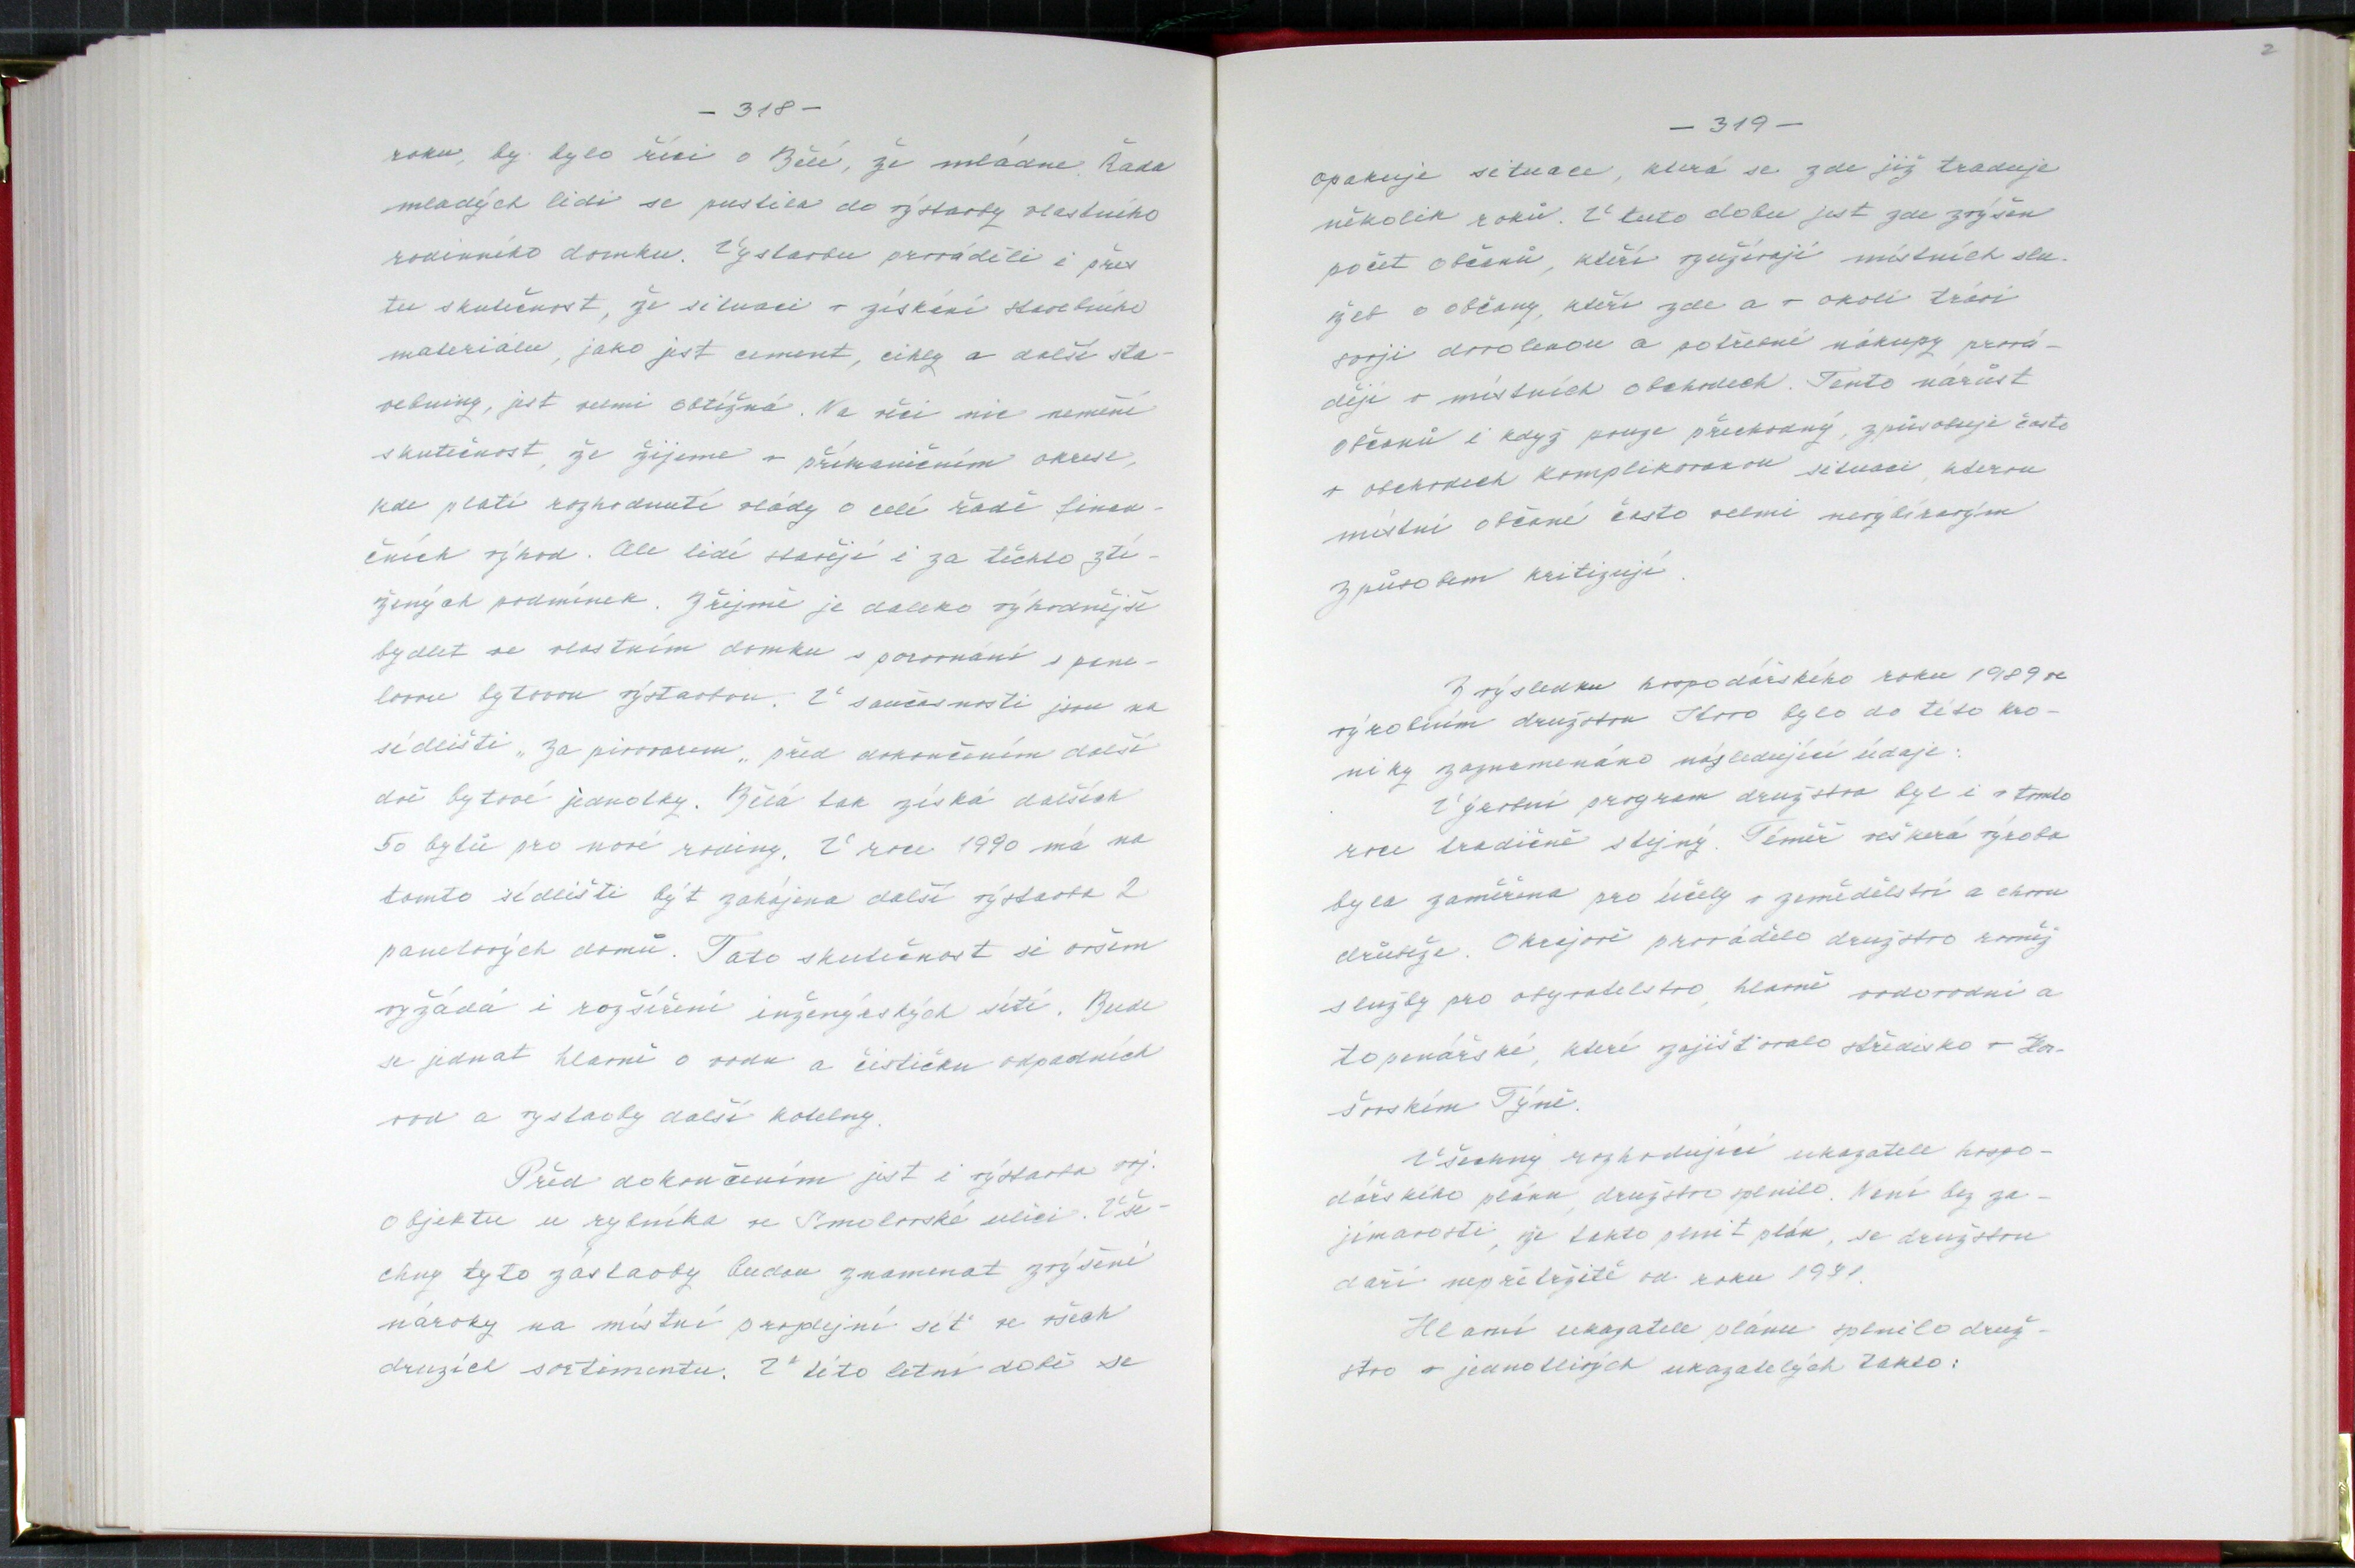 - 318 -
roku, by bylo říci o Bělé, že mládne. Řada
mladých lidí se pustila do výstavby vlastního
rodinného domku. Výstavbu prováděli i přes
tu skutečnost, že situaci v získání stavebního
materiálu, jako jest cement, cihly a další sta-
vebniny, jest velmi obtížná. Na věci nic nemění
skutečnost, že žijeme v příhraničním okrese,
kde platí rozhodnutí vlády o celé řadě finan-
čních výhod. Ale lidé stavějí i za těchto ztí-
žených podmínek. Zřejmě je daleko výhodnější
bydlet ve vlastním domku v porovnání s pane-
lovou bytovou výstavbou. V současnosti jsou na
sídlišti „Za pivovarem„ před dokončením další
dvě bytové jednotky. Bělá tak získá dalších
50 bytů pro nové rodiny. V roce 1990 má na
tomto sídlišti být zahájena další výstavba 2
panelových domů. Tato skutečnost si ovšem
vyžádá i rozšíření inženýrských sítí. Bude
se jednat hlavně o vodu a čističku odpadních
vod a výstavby další kotelny.
Před dokončením jest i výstavba voj.
objektu u rybníka ve Smolovské ulici. Vše-
chny tyto zástavby budou znamenat zvýšené
nároky na místní prodejní síť ve všech
druzích sortimentu. V této letní době se
2
- 319 -
opakuje situace, která se zde již traduje
několik roků. V tuto dobu jest zde zvýšen
počet občanů, kteří využívají místních slu-
žeb o občany, kteří zde a v okolí tráví
svoji dovolenou a potřebné nákupy prová-
ději v místních obchodech. Tento nárůst
občanů i když pouze přechodný, způsobuje často
v obchodech komplikovanou situaci, kterou
místní občané často velmi nevybíravým
způsobem kritizují.
Z výsledku hospodářského roku 1989 ve
výrobním družstvu Kovo bylo do této kro-
niky zaznamenáno následující údaje:
Výrobní program družstva byl i v tomto
roce tradičně stejný. Téměř veškerá výroba
byla zaměřena pro účely v zemědělství a chovu
drůbeže. Okrajově provádělo družstvo rovněž
služby pro obyvatelstvo, hlavně vodovodní a
topenářské, které zajišťovalo středisko v Hor-
šovském Týně.
Všechny rozhodující ukazatele hospo-
dářského plánu, družstvo splnilo. Není bez za-
jímavosti, že takto plnit plán, se družstvu
daří nepřetržitě od roku 1981.
Hlavní ukazatele plánu splnilo druž-
stvo v jednotlivých ukazatelých takto: